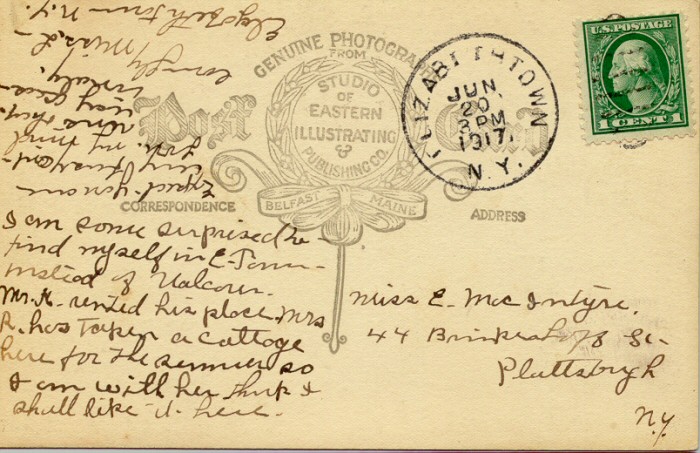 GENUINE PHOTOGRA
FROM
STUDIO
OF
EASTERN
ILLUSTRATING
&
PUBLISHING CO.
BELFAST MAINE
Post Card
CORRESPONDENCE
ADDRESS
ELIZABETHTOWN
JUN
20
3 PM
1917
N.Y.
U.S. POSTAGE
1 CENT 1
I am some surprised to
find myself in E-Town
instead of Valcour.
Mr. K. rented his place. Mrs
R. has taken a cottage
here for the summer so
I am with her think I
shall like it here.
Expect you are
my
Miss L
Elizabethtown N.Y.
Miss E. MacIntyre.
44 Brinkerhoff St-
Plattsburgh
N.Y.